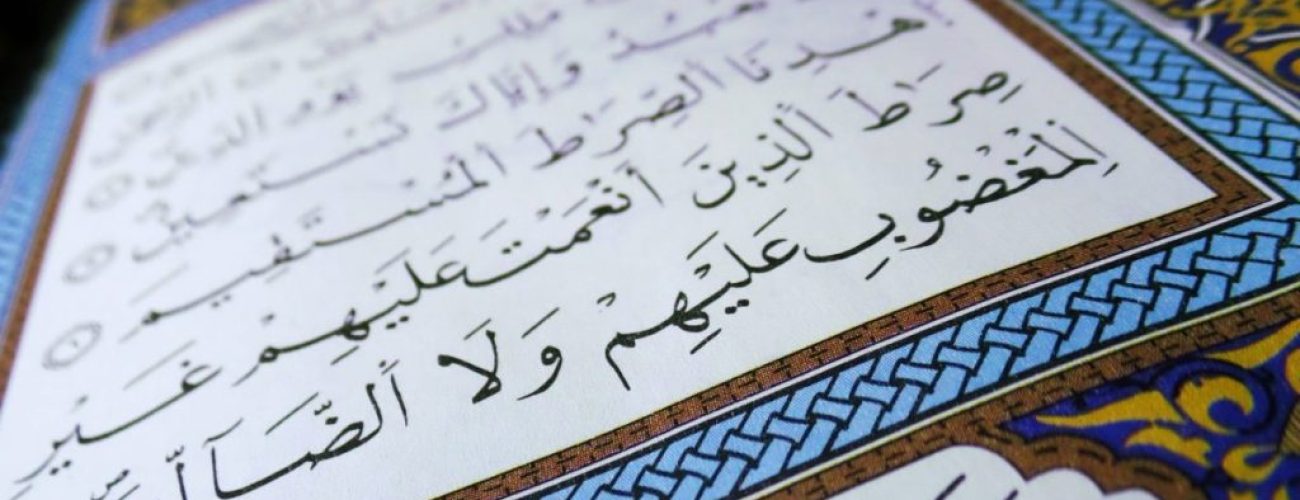 مَلِكِ يَوْمِ الدِّينِ
نَعْبُدُ وَإِيَّاكَ نَسْتَعِينُ
هْدِنَا اَلصِّرَٰطَ اَلْمُسْتَقِيمَ
صِرَٰطَ اَلذِينَ أَنْعَمْتَ عَلَيْهِمْ غَيْرِ
اِلْمَغْضُوبِ عَلَيْهِمْ وَلَا اَلضَّآلِّ